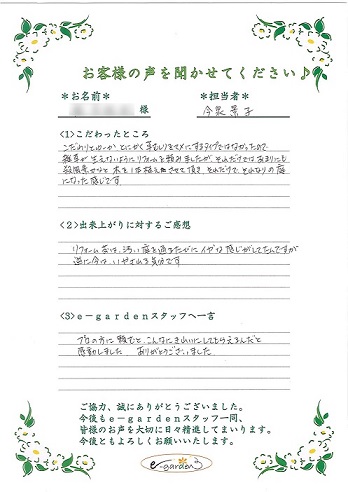 お客様の声を聞かせてください♪
＊お名前＊ ＊担当者＊
様 今泉 景子
<1>こだわったところ
こだわりというか とにかく草むしりをマメにするタイプではなかったので
雑草が生えないようにリフォームを頼みましたが、それだけではあまりにも
殺風景かなと 木を1本植えさせて頂き それだけで それなりの庭
になった感じです
<2>出来上がりに対するご感想
リフォーム前は、汚い庭を通るたびにイヤな感じがしてたんですが
逆に今は、いやされる気分です
<3>e-gardenスタッフへ一言
プロの方に頼むと、こんなにきれいにしてもらえるんだと
感動しました ありがとうございました
ご協力、誠にありがとうございました。
今後もe-gardenスタッフ一同、
皆様のお声を大切に日々精進してまいります。
今後ともよろしくお願いいたします。
e-garden